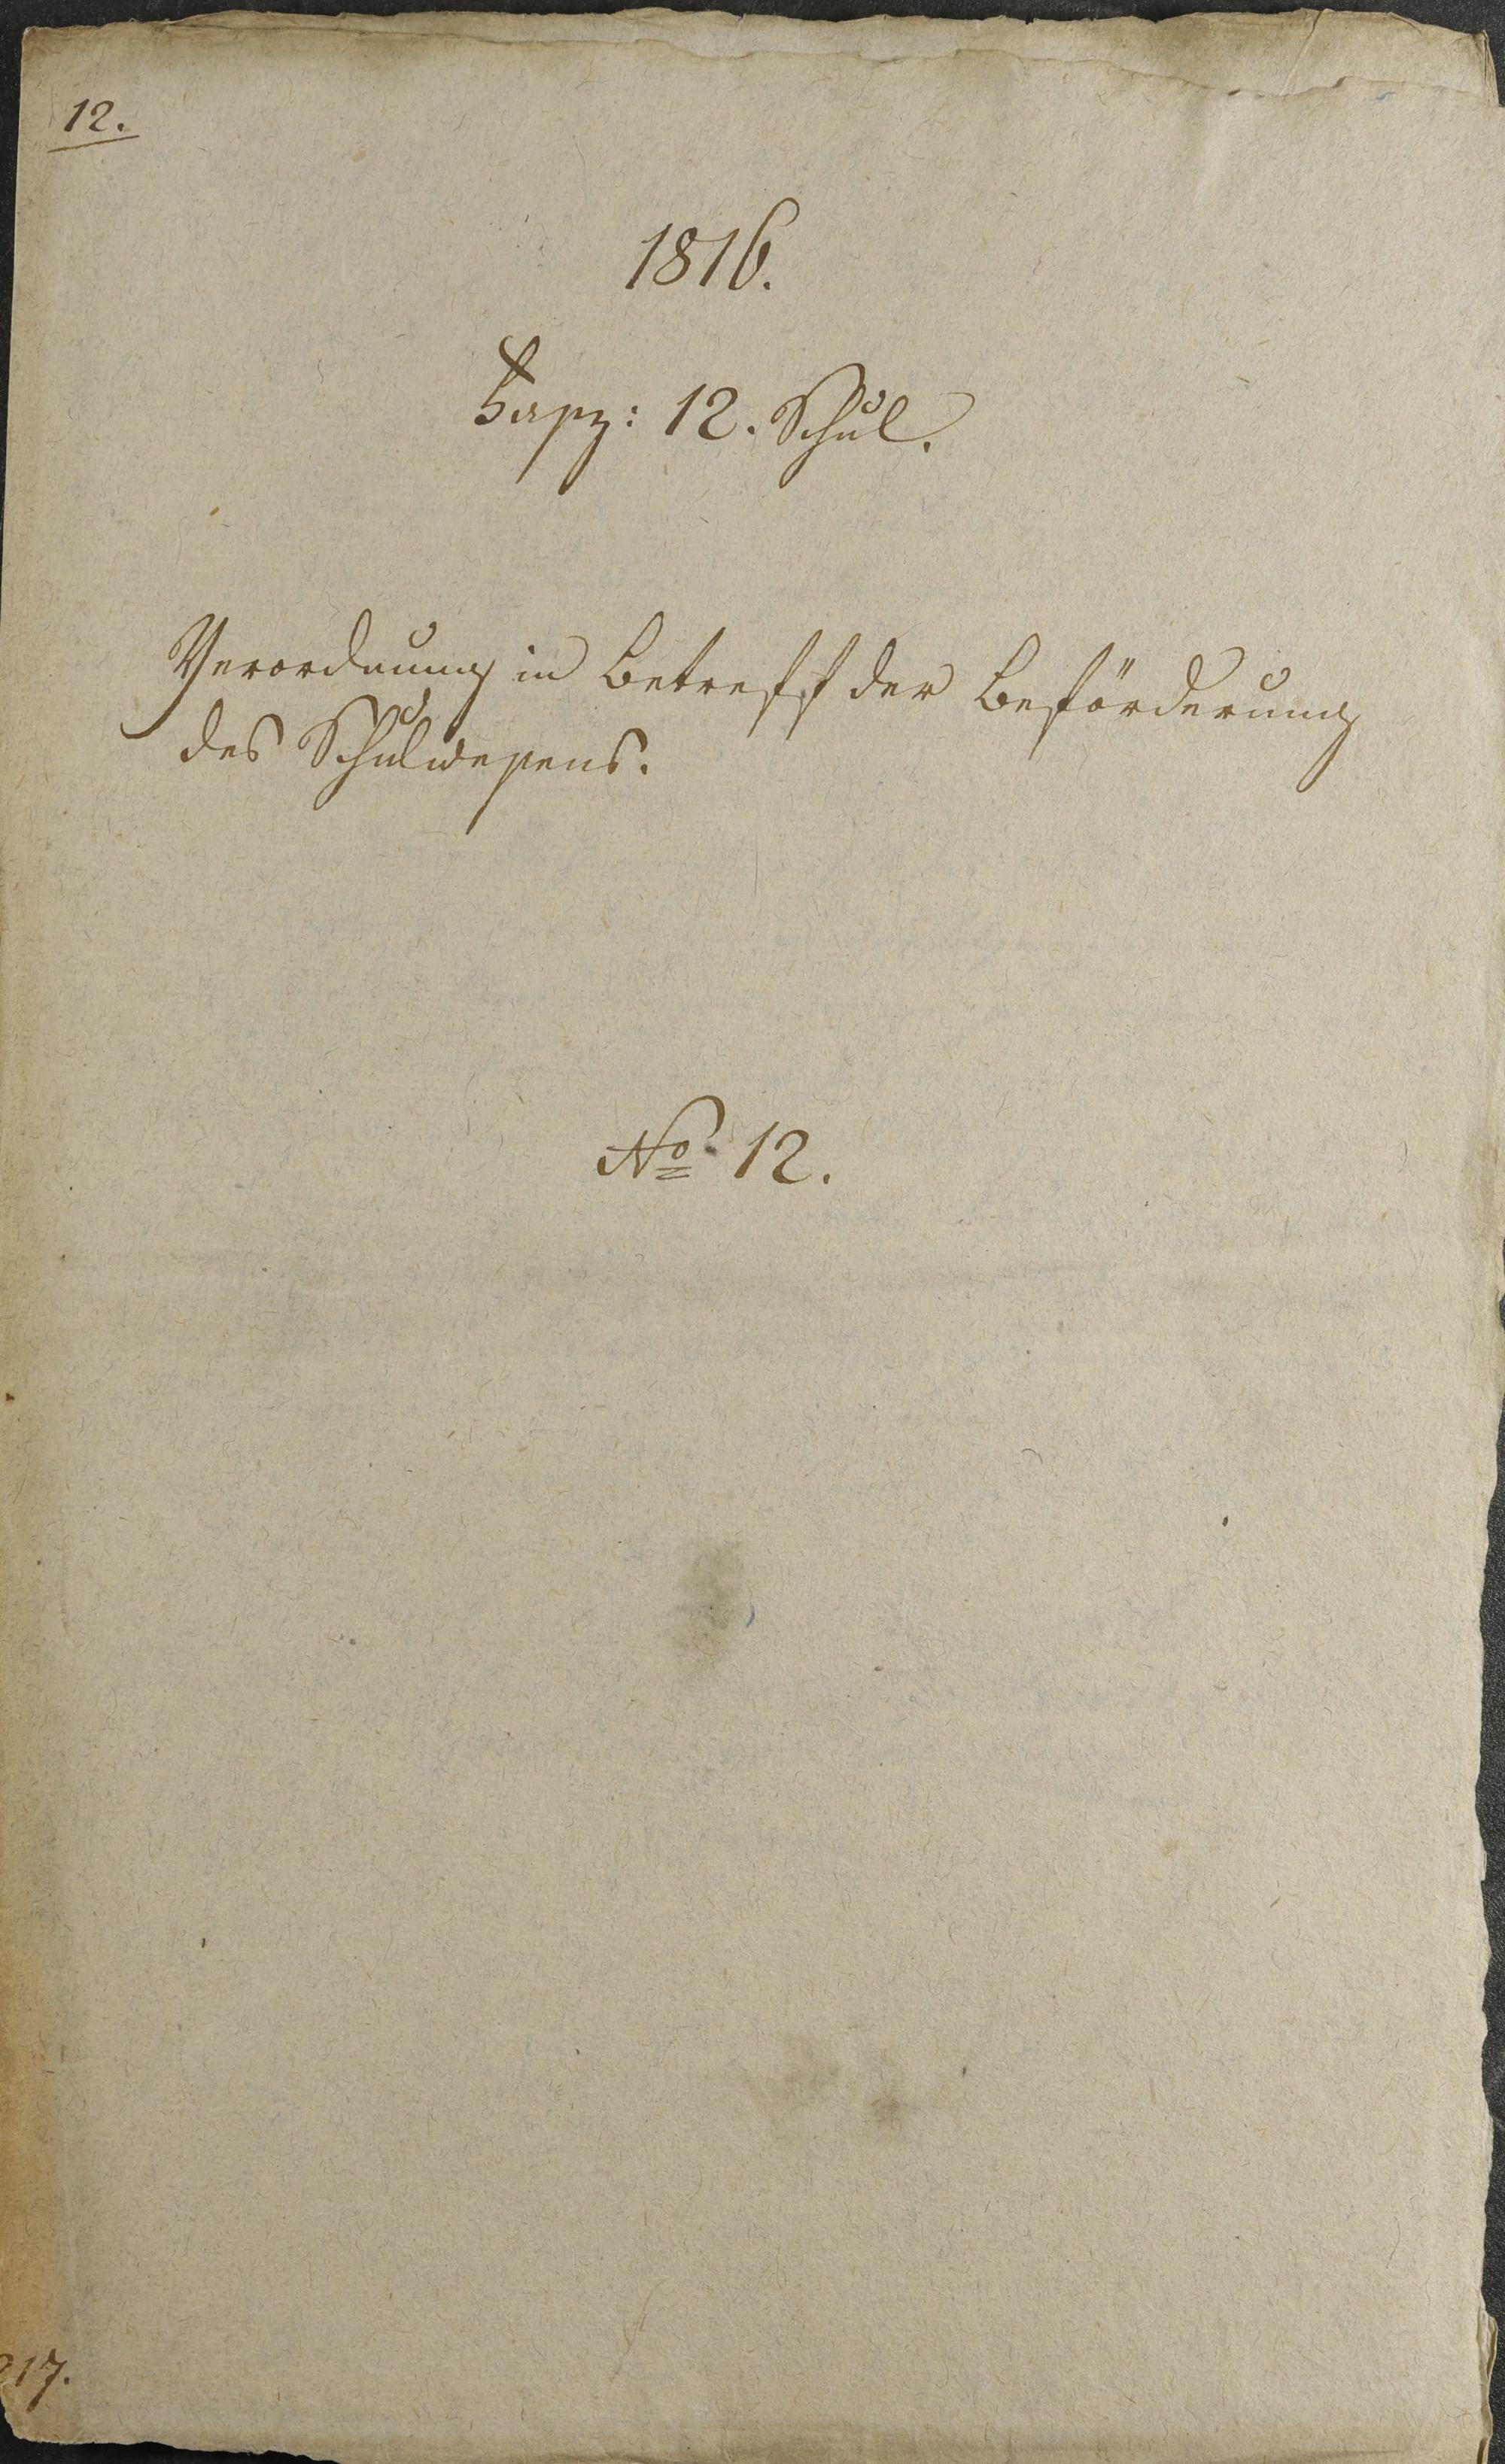 12.
1816.
Fasz: 12. Schul.
Verordnung in Betreff der Beförderung
des Schulwesens.
No 12.
217.